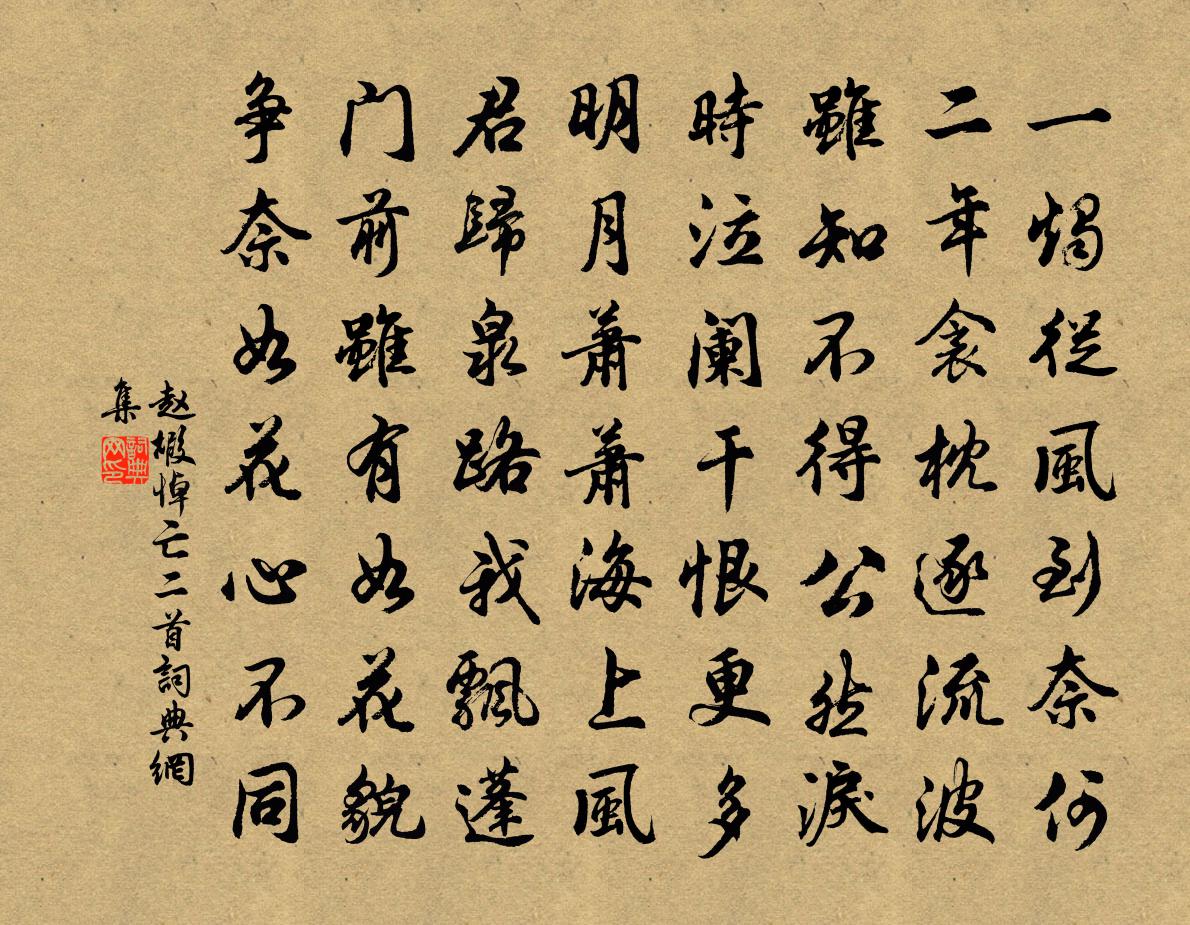 一燭從風到奈何
二年衾枕逐流波
雖知不得公然淚
時泣闌干恨更多
明月蕭蕭海上風
君歸泉路我飄蓬
門前雖有如花貌
争奈如花心不同
赵嘏悼亡二首詞典網
集
詞典
网印